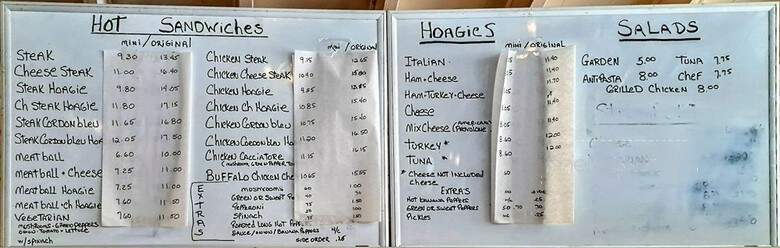 Hot Sandwiches
mini/original
Steak 9.30 13.45
Cheese Steak 11.00 16.40
Steak Hoagie 9.80 14.05
Ch Steak Hoagie 11.80 17.15
Steak Cordon bleu 11.65 16.80
Steak Cordon bleu Hoa 12.05 17.50
meatball 6.60 10.00
meatball + cheese 7.25 11.00
meatball Hoagie 7.25 11.00
meatball ch Hoagie 7.60 11.50
Vegetarian 7.60 11.50
mushrooms - Green Peppers
onion - Tomato - Lettuce
w/spinach
mini / original
Chicken Steak 9.15 12.65
Chicken Cheese Steak 10.40 15.80
Chicken Hoagie 9.65
Chicken Ch Hoagie 10.85 15.40
Chicken Cordon bleu 10.75 15.40
Chicken Cordon bleu Ho 11.20 16.50
Chicken Cacciatore 11.15 16.15
Buffalo Chicken Che 10.65 15.55
EXTRAS
mushrooms 1.00
Green or Sweet Peppers
Pepperoni 1.50
Spinach 1.00
Roasted Long Hot
Sauce/onion/Banana Peppers n/c
side order .25
Hoagies
mini / original
Italian 11.40
Ham + Cheese 11.40
Ham-Turkey-Cheese 11.70
Cheese 11.40
Mix Cheese (American Provolone 11.40
Turkey * 8.60 12.00
Tuna * 8.60 12.00
* Cheese not included
cheese
Extras
Hot banana Peppers
Green or Sweet Peppers .50 .70
Pickles
Salads
Garden 5.00 Tuna 7.75
Antipasta 8.00 Chef 7.75
Grilled Chicken 8.00